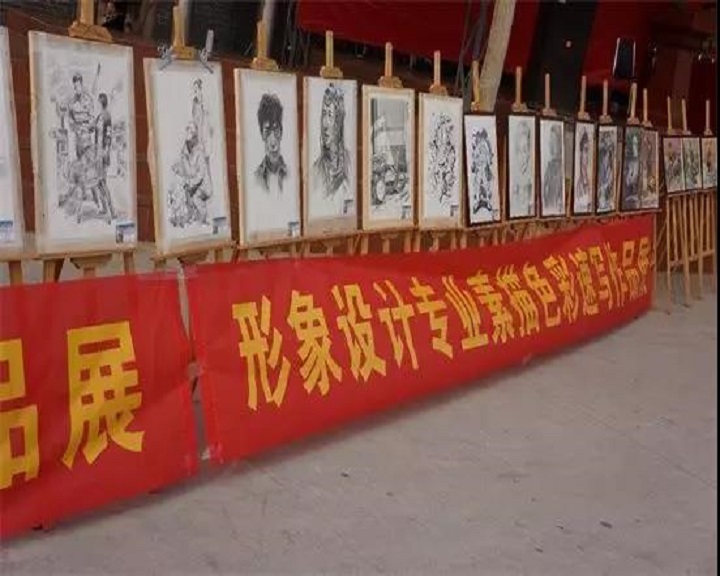 品展
形象设计专业素描色彩速写作品展